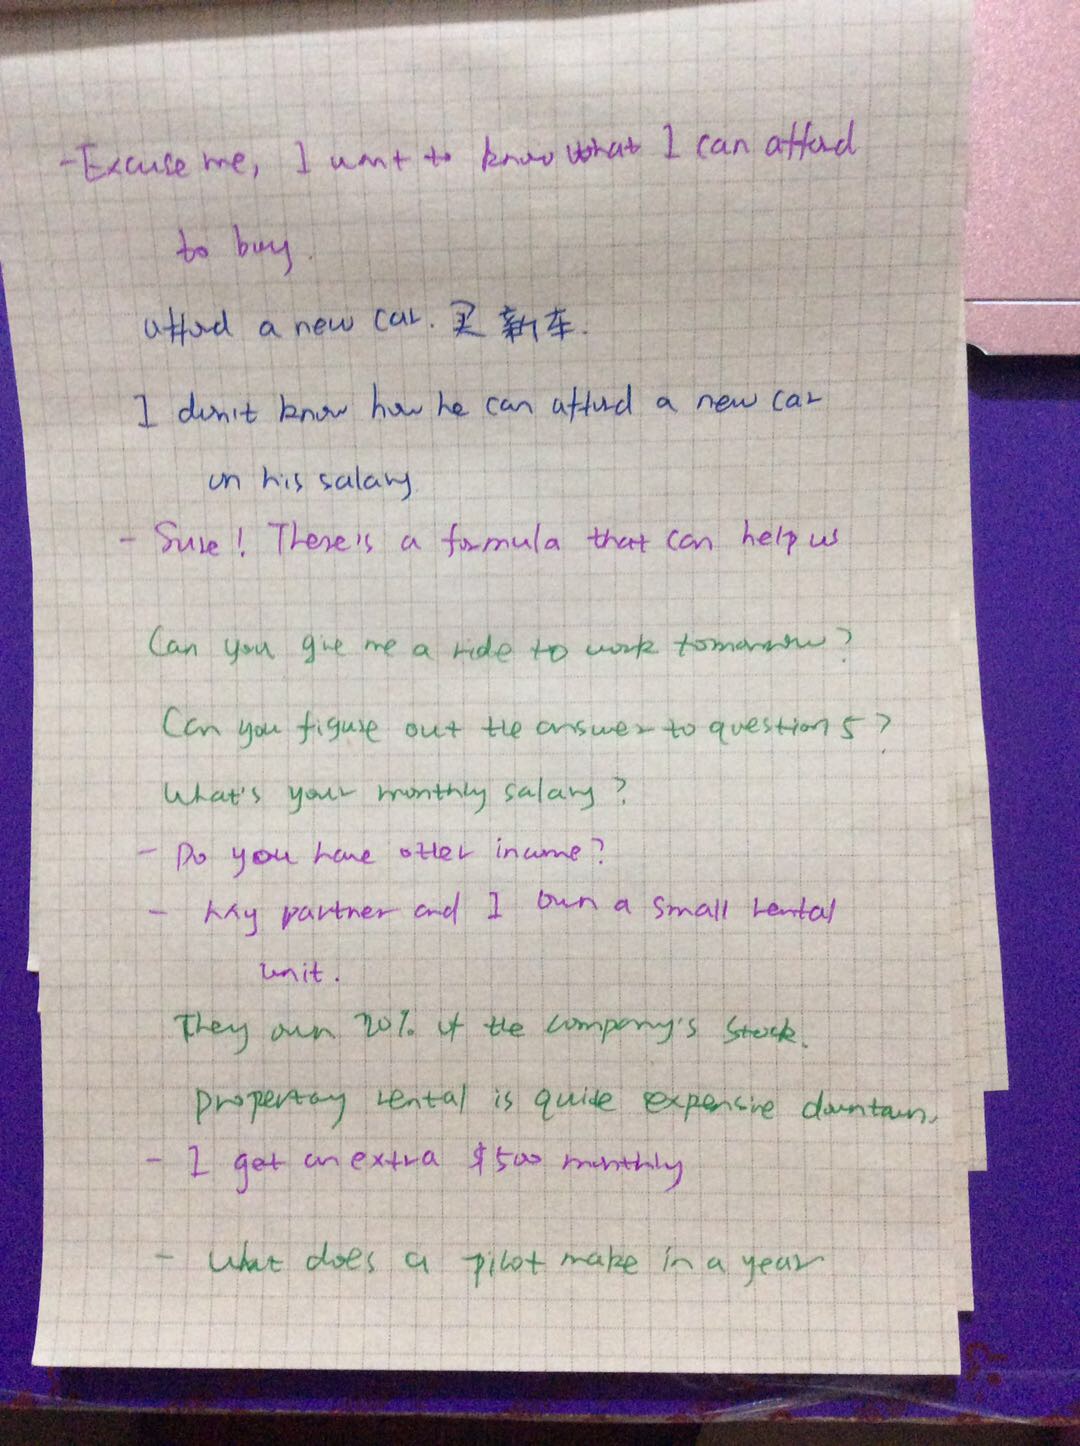 - Excuse me, I want to know what I can afford
to buy.
afford a new car. 买新车.
I don't know how he can afford a new car
on his salary
- Sure! There's a formula that can help us
Can you give me a ride to work tomorrow?
Can you figure out the answer to question 5?
What's your monthly salary?
- Do you have other income?
- My partner and I own a small rental
unit.
They own 20% of the company's stock.
propertay rental is quite expensive downtown.
- I get an extra $500 monthly
- What does a pilot make in a year